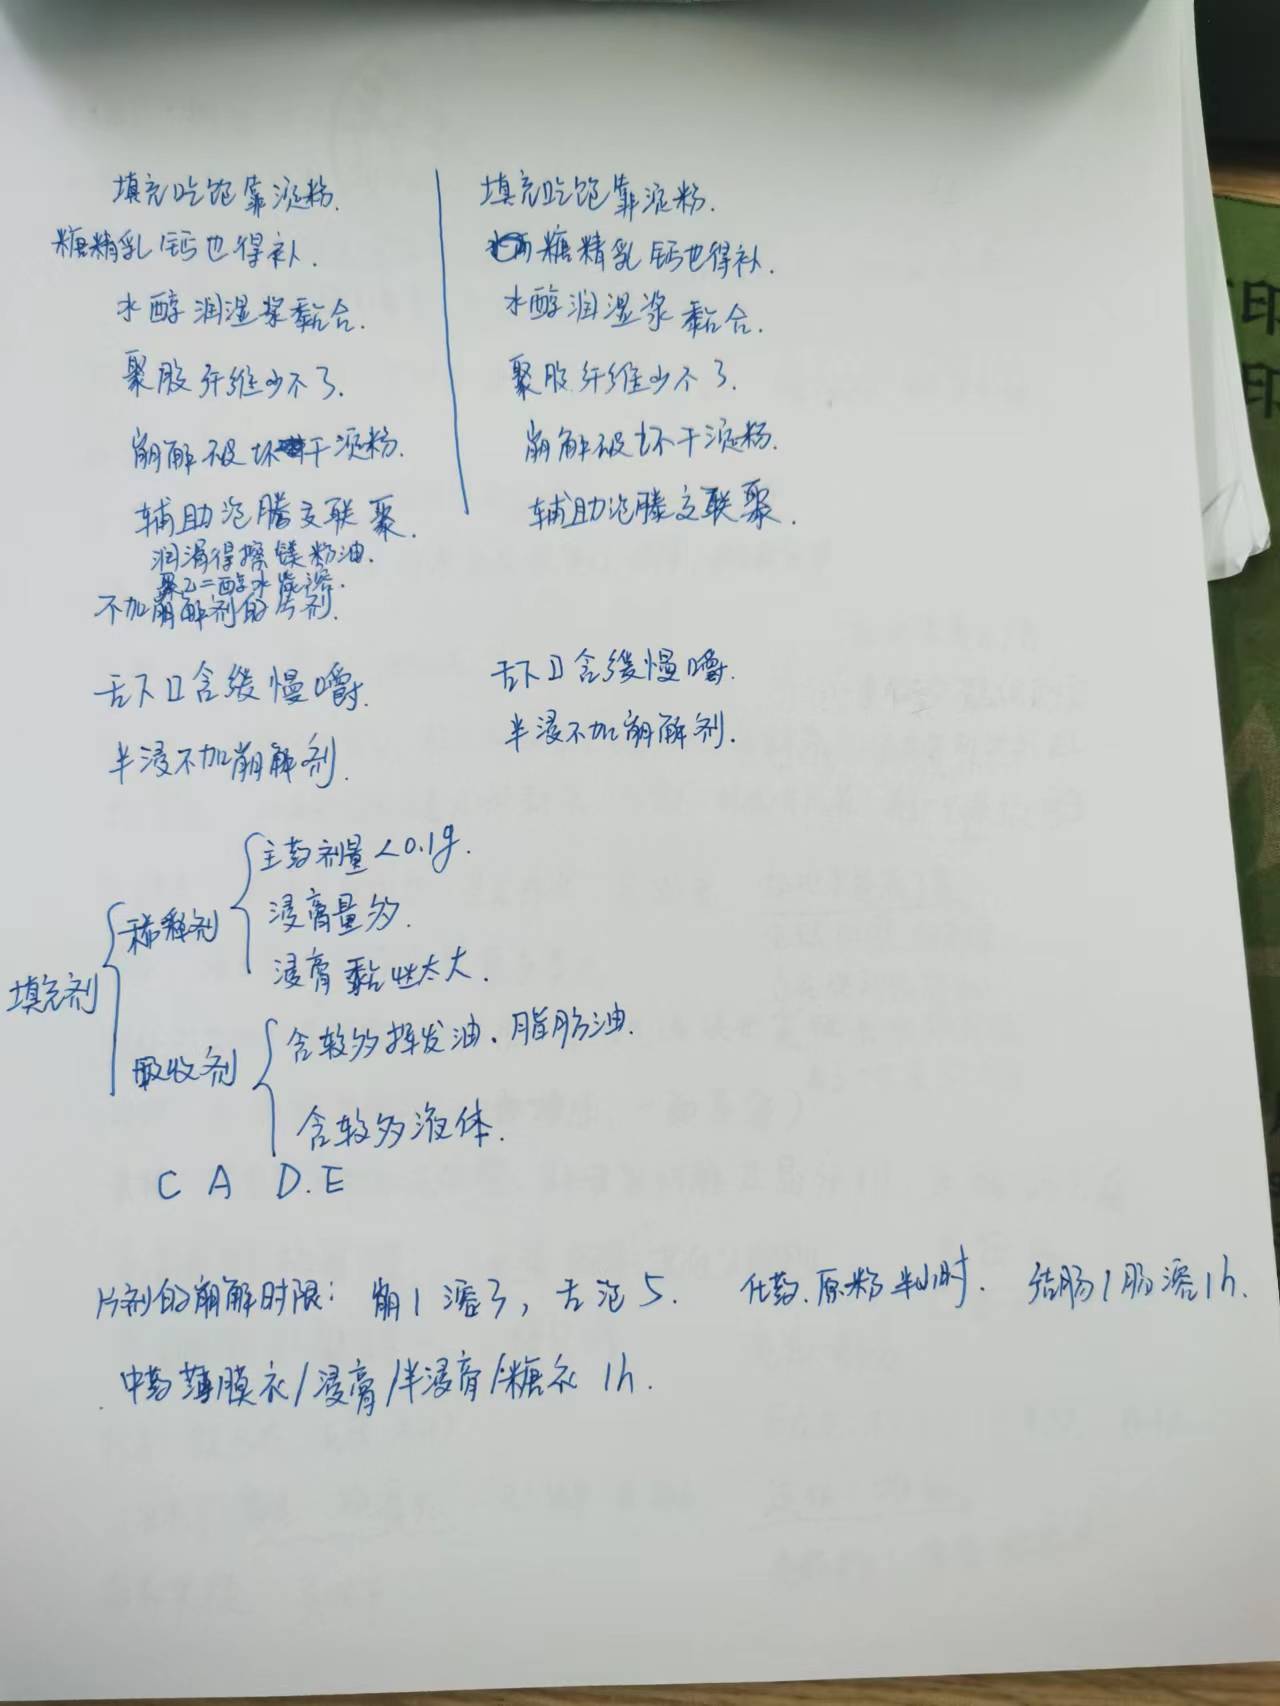 填充吃饱靠淀粉.
糖精乳钙也得补.
水醇润湿浆黏合.
聚胶纤维少不了.
崩解破坏干淀粉.
辅助泡腾交联聚.
润滑得擦镁粉油.
聚乙二醇水能溶.
不加崩解剂的片剂.
舌下口含缓慢嚼.
半浸不加崩解剂.
填充吃饱靠淀粉.
糖精乳钙也得补.
水醇润湿浆黏合.
聚胶纤维少不了.
崩解破坏干淀粉.
辅助泡腾交联聚.
舌下口含缓慢嚼.
半浸不加崩解剂.
填充剂
稀释剂
主药剂量<0.1g.
浸膏量多.
浸膏黏性太大.
吸收剂
含较多挥发油、脂肪油.
含较多液体.
C A D.E
片剂的崩解时限: 崩1溶3, 舌泡5. 化药.原粉半小时. 结肠/肠溶1h.
中药薄膜衣/浸膏/半浸膏/糖衣 1h.
印
印